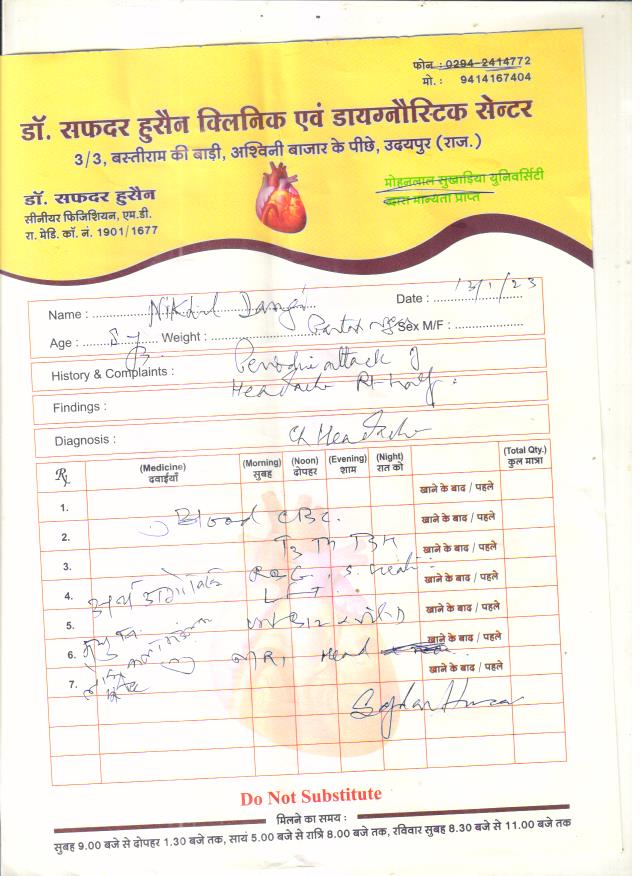 फोन : 0294-2414772
मो. : 9414167404
डॉ. सफदर हुसैन क्लिनिक एवं डायग्नौस्टिक सेन्टर
3/3, बस्तीराम की बाड़ी, अश्विनी बाजार के पीछे, उदयपुर (राज.)
डॉ. सफदर हुसैन
सीनीयर फिजिशियन, एम.डी.
रा. मेडि. कॉ. नं. 1901/1677
मोहनलाल सुखाड़िया युनिवर्सिटी
द्वारा मान्यता प्राप्त
Name : Nikhil Date : 13/1/23
Age : Weight : Sex M/F :
History & Complaints : attack of
Headache Rt half
Findings :
Diagnosis : Headache
Rx (Medicine) (Morning) (Noon) (Evening) (Night) (Total Qty.)
दवाईयाँ सुबह दोपहर शाम रात को कुल मात्रा
1. खाने के बाद / पहले
Blood CBC.
2. खाने के बाद / पहले
T3 T4 TSH
3. खाने के बाद / पहले
RBS, S. Creat
4. खाने के बाद / पहले
LFT
5. खाने के बाद / पहले
Vit B12 Vit D
6. खाने के बाद / पहले
MRI Head
7. खाने के बाद / पहले
Do Not Substitute
मिलने का समय :
सुबह 9.00 बजे से दोपहर 1.30 बजे तक, सायं 5.00 बजे से रात्रि 8.00 बजे तक, रविवार सुबह 8.30 बजे से 11.00 बजे तक